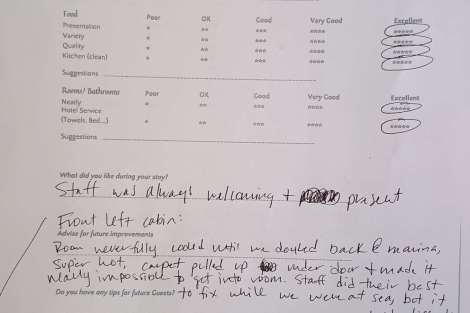 Food Poor OK Good Very Good Excellent
Presentation * ** *** **** *****
Variety * ** *** **** *****
Quality * ** *** **** *****
Kitchen (clean) * ** *** **** *****
Suggestions
Rooms/ Bathrooms Poor OK Good Very Good Excellent
Neatly * ** *** **** *****
Hotel Service
(Towels, Bed...) * ** *** **** *****
Suggestions
What did you like during your stay?
Staff was always welcoming +
Front left cabin:
Advise for future improvements
Room never fully cooled until we docked back @ marina,
super hot, carpet pulled up under door + made it
nearly impossible to get into room. Staff did their best
Do you have any tips for future Guests? to fix while we were at sea, but it